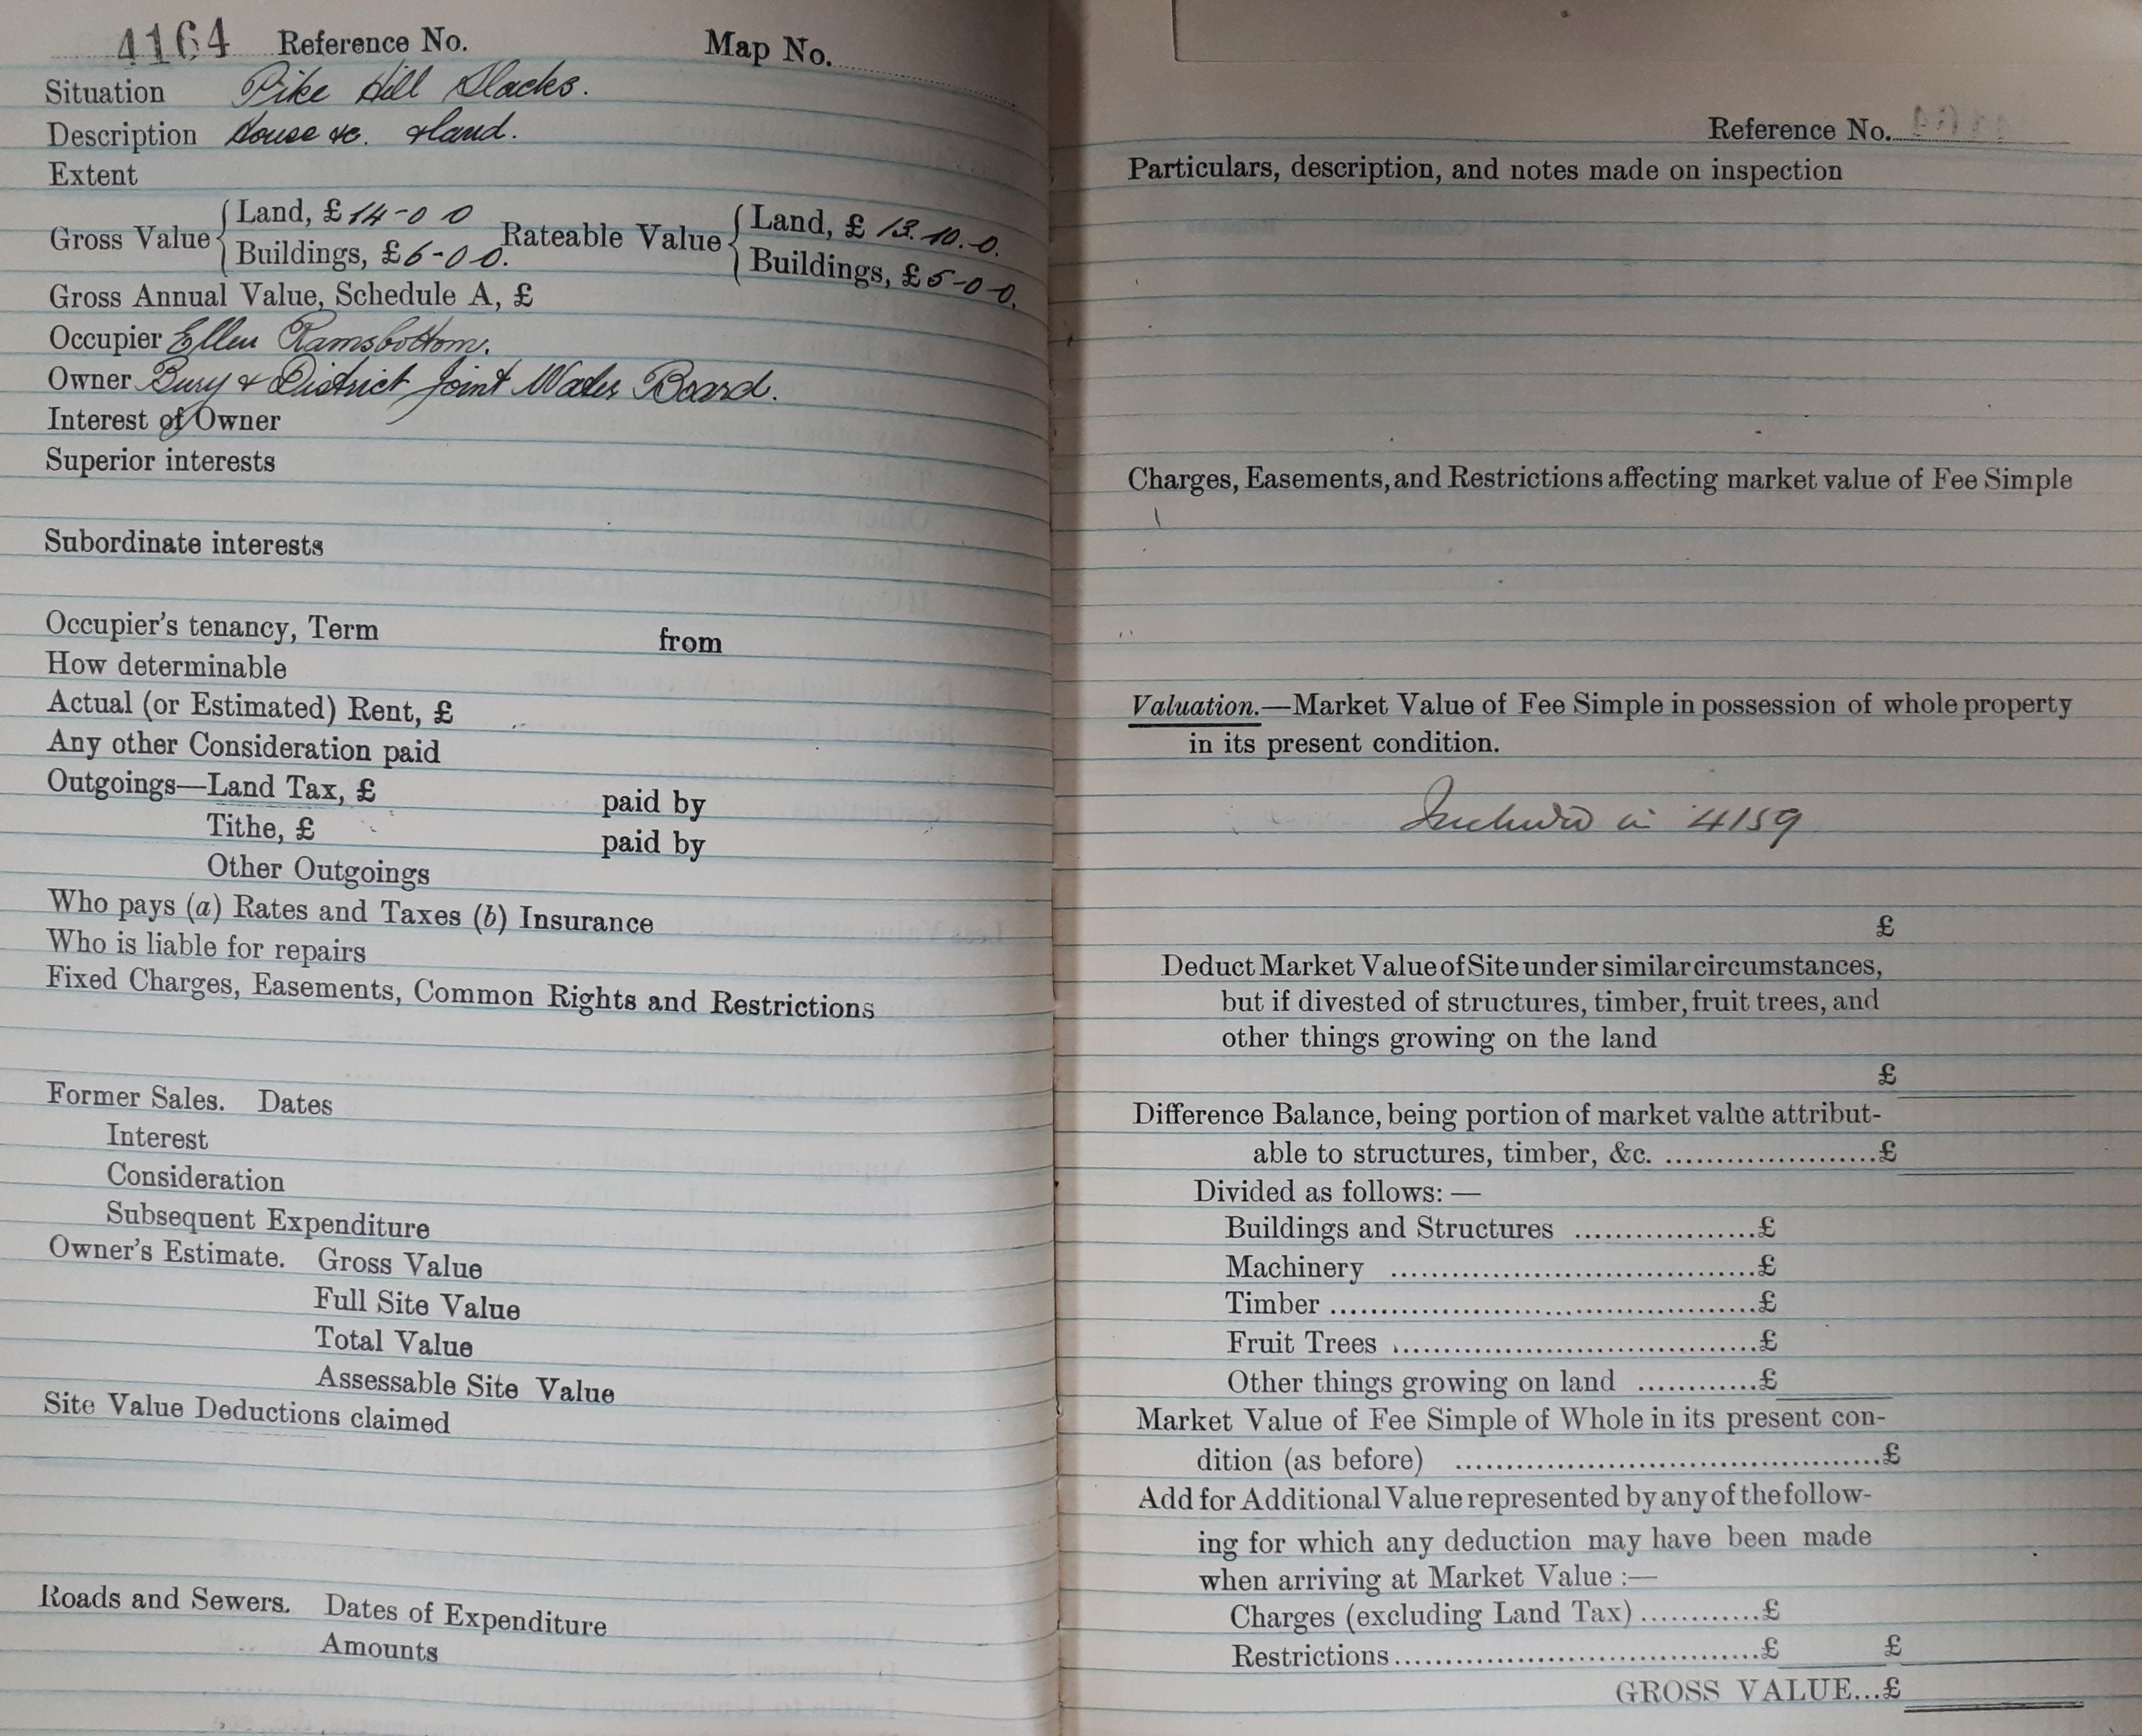 4164 Reference No. Map No.
Situation Pike Hill Slacks.
Description House &c. & land.
Extent
Gross Value { Land, £ 14-0 0 Rateable Value { Land, £ 13.10.0.
Buildings, £ 6-0 0. Buildings, £ 5-0 0.
Gross Annual Value, Schedule A, £
Occupier Ellen Ramsbottom.
Owner Bury & District Joint Water Board.
Interest of Owner
Superior interests
Subordinate interests
Occupier's tenancy, Term from
How determinable
Actual (or Estimated) Rent, £
Any other Consideration paid
Outgoings—Land Tax, £ paid by
Tithe, £ paid by
Other Outgoings
Who pays (a) Rates and Taxes (b) Insurance
Who is liable for repairs
Fixed Charges, Easements, Common Rights and Restrictions
Former Sales. Dates
Interest
Consideration
Subsequent Expenditure
Owner's Estimate. Gross Value
Full Site Value
Total Value
Assessable Site Value
Site Value Deductions claimed
Roads and Sewers. Dates of Expenditure
Amounts
Reference No.
Particulars, description, and notes made on inspection
Charges, Easements, and Restrictions affecting market value of Fee Simple
Valuation.—Market Value of Fee Simple in possession of whole property
in its present condition.
Included in 4159
£
Deduct Market Value of Site under similar circumstances,
but if divested of structures, timber, fruit trees, and
other things growing on the land
£
Difference Balance, being portion of market value attribut-
able to structures, timber, &c. ......................£
Divided as follows: —
Buildings and Structures ...................£
Machinery .......................................£
Timber .............................................£
Fruit Trees .......................................£
Other things growing on land ............£
Market Value of Fee Simple of Whole in its present con-
dition (as before) .............................................£
Add for Additional Value represented by any of the follow-
ing for which any deduction may have been made
when arriving at Market Value :—
Charges (excluding Land Tax) ............£
Restrictions .......................................£ £
GROSS VALUE...£